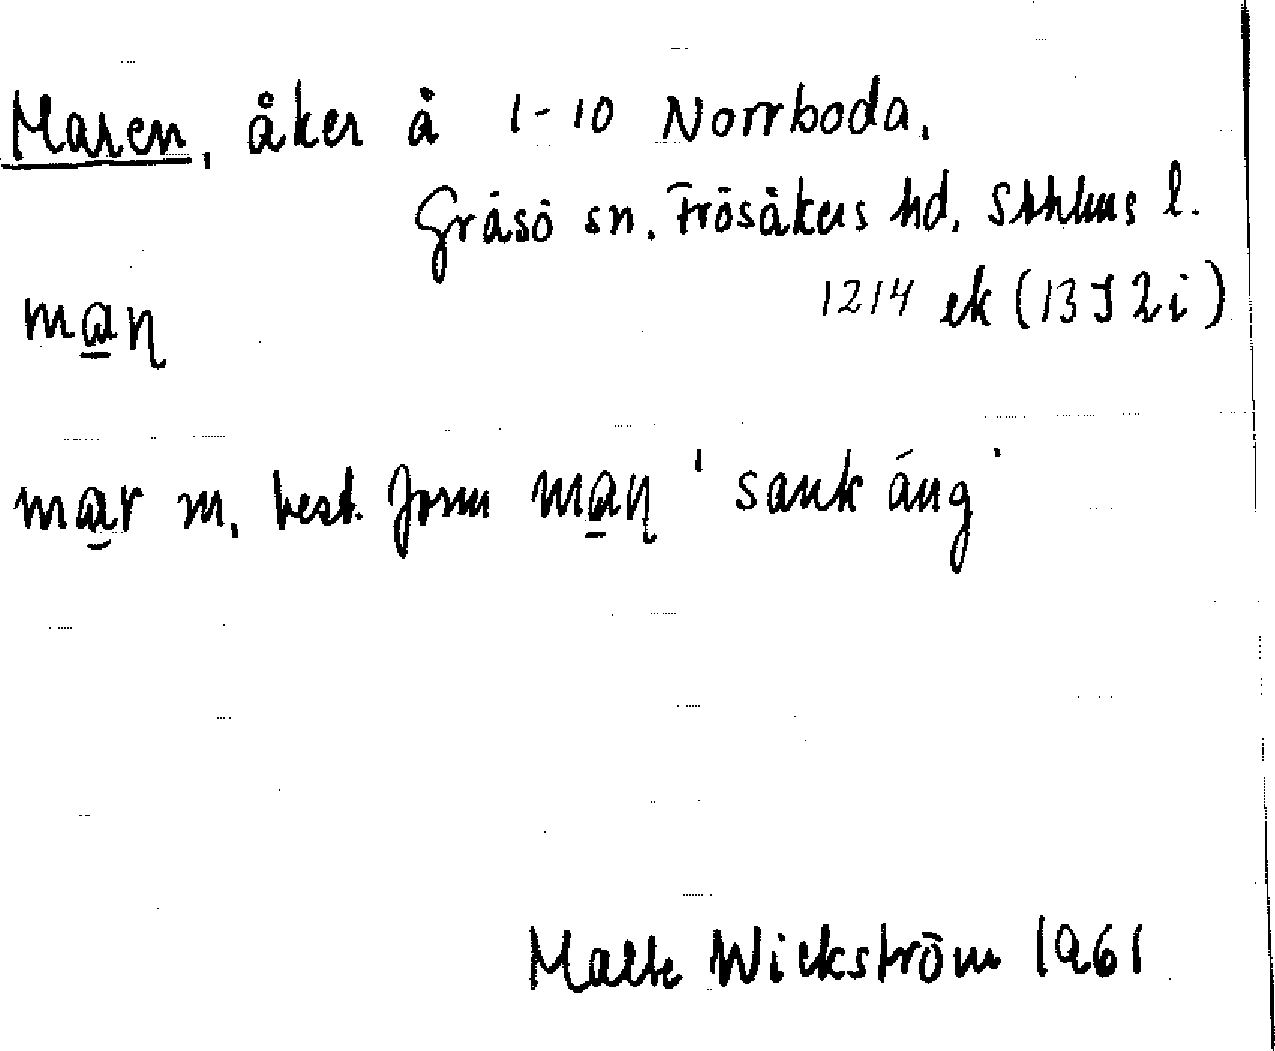 Maren, åker å 1-10 Norrboda,
Gräsö sn. Frösåkers hd, Sthlms l.
1214 ek (13 J 2 i)
ma̲ɳ
ma̲r m, best. form ma̲ɳ 'sank äng'
Malte Wickström 1961